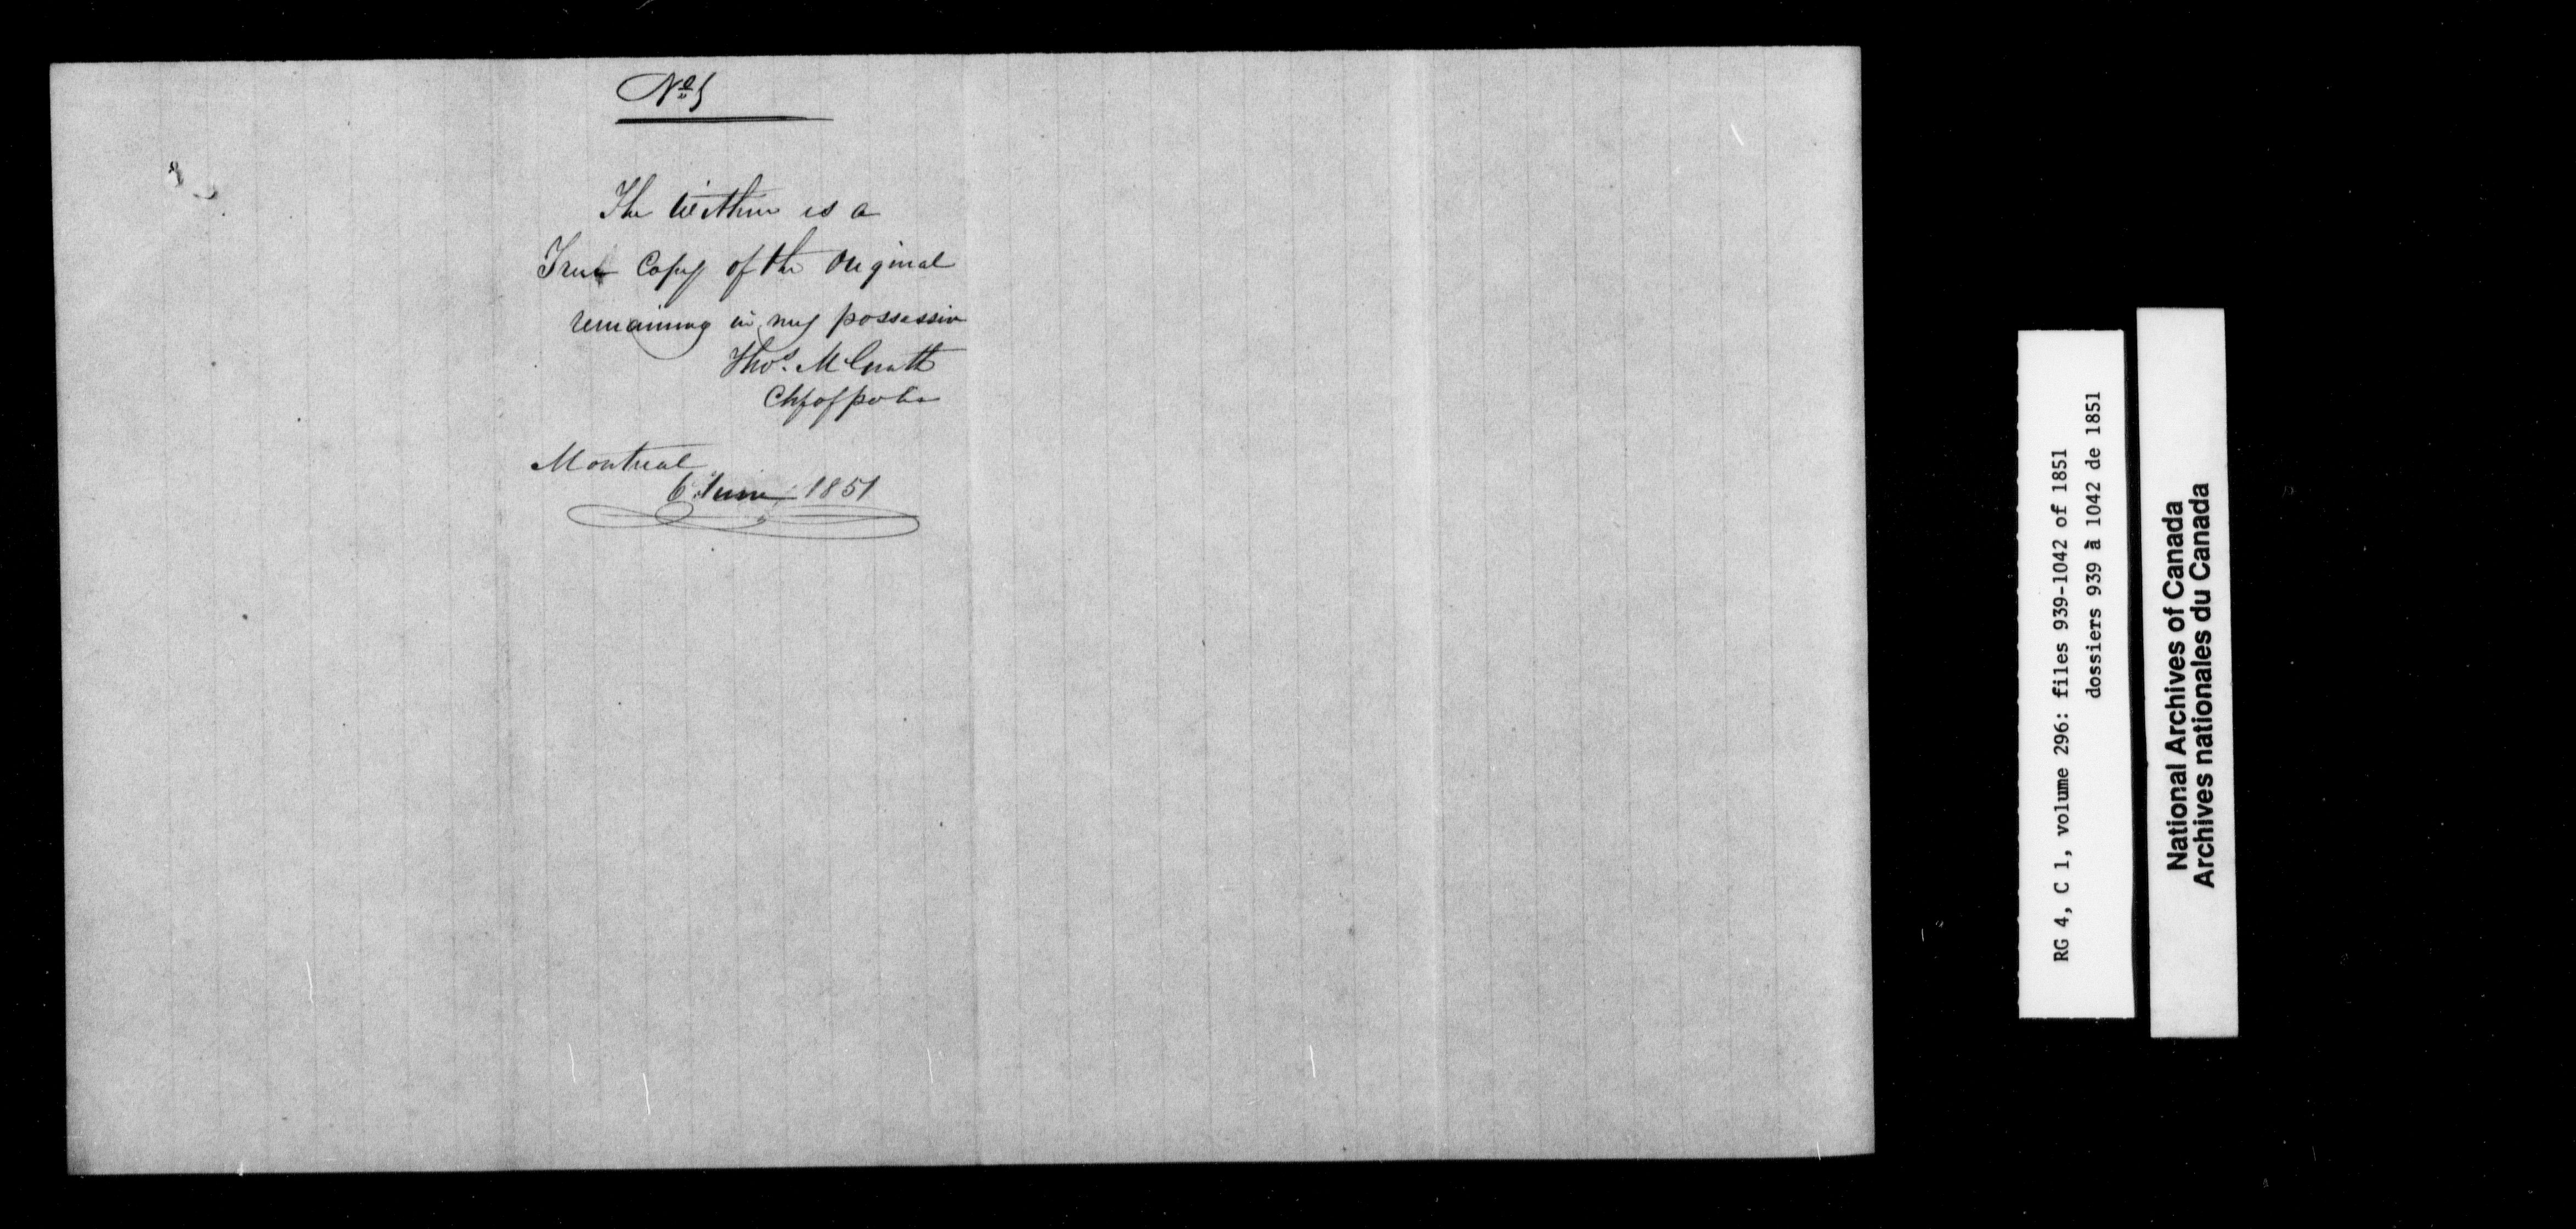 No 5
The Within is a
True Copy of the Original
remaining in my possession
Thos. McGrath
Ch of police
Montreal
6 June 1851
RG 4, C 1, volume 296: files 939-1042 of 1851
dossiers 939 à 1042 de 1851
National Archives of Canada
Archives nationales du Canada